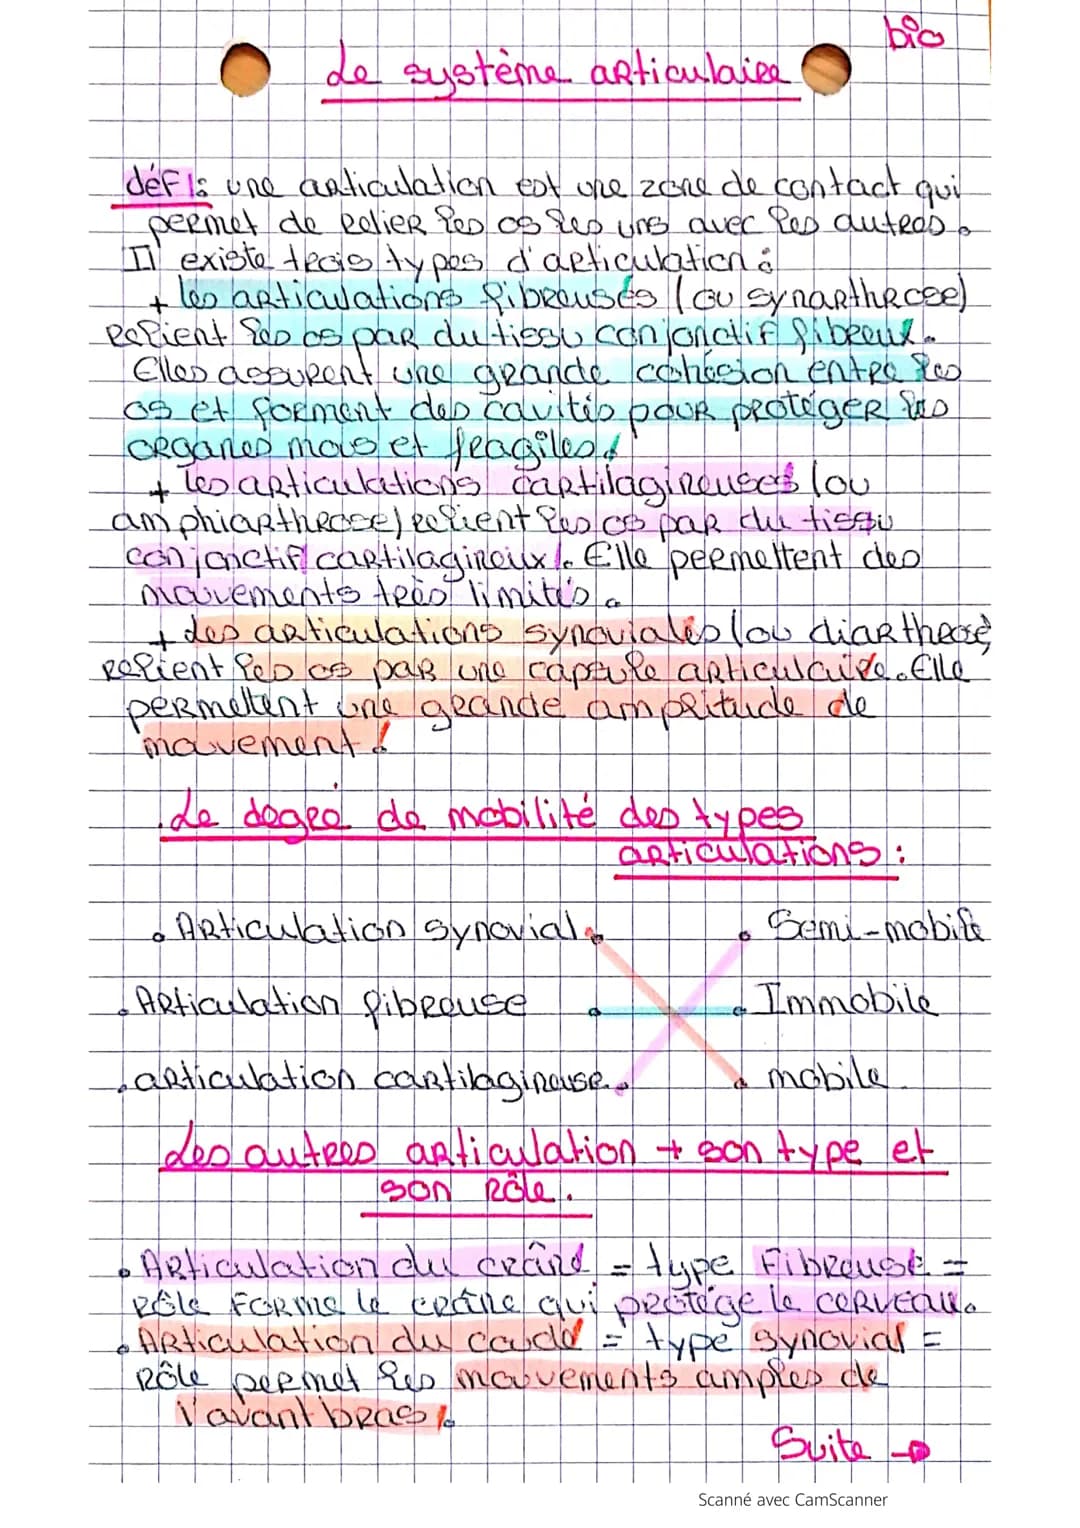 bio
Le système articulaire
déf 1: une articulation est une zone de contact qui
permet de relier les os les uns avec les autres.
Il existe trois types d'articulation :
+ les articulations fibreuses (ou synarthrose)
relient les os par du tissu conjonctif fibreux.
Elles assurent une grande cohésion entre les
os et forment des cavités pour protéger les
organes mous et fragiles.
+ les articulations cartilagineuses (ou
amphiarthrose) relient les os par du tissu
conjonctif cartilagineux. Elle permettent des
mouvements très limités.
+ des articulations synoviales (ou diarthrose)
relient les os par une capsule articulaire. Elle
permettent une grande amplitude de
mouvement.
Le degré de mobilité des types
articulations :
• Articulation synovial • • Semi-mobile
• Articulation fibreuse • • Immobile
• articulation cartilagineuse • • mobile
Les autres articulation + son type et
son rôle.
• Articulation du crâne = type Fibreuse =
rôle forme le crâne qui protège le cerveau.
• Articulation du coude = type synovial =
Rôle permet les mouvements amples de
l'avant bras.
Suite →
Scanné avec CamScanner